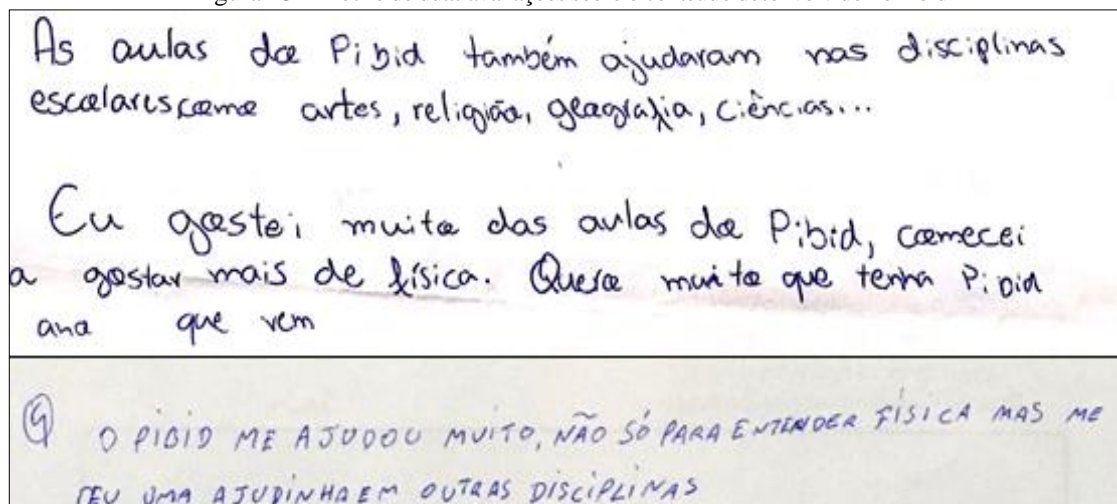 As aulas do Pibid também ajudaram nas disciplinas
escolares como artes, religião, geografia, ciências...
Eu gostei muito das aulas do Pibid, comecei
a gostar mais de física. Quero muito que tenha Pibid
ano que vem
4 O PIBID ME AJUDOU MUITO, NÃO SÓ PARA ENTENDER FÍSICA MAS ME
DEU UMA AJUDINHA EM OUTRAS DISCIPLINAS